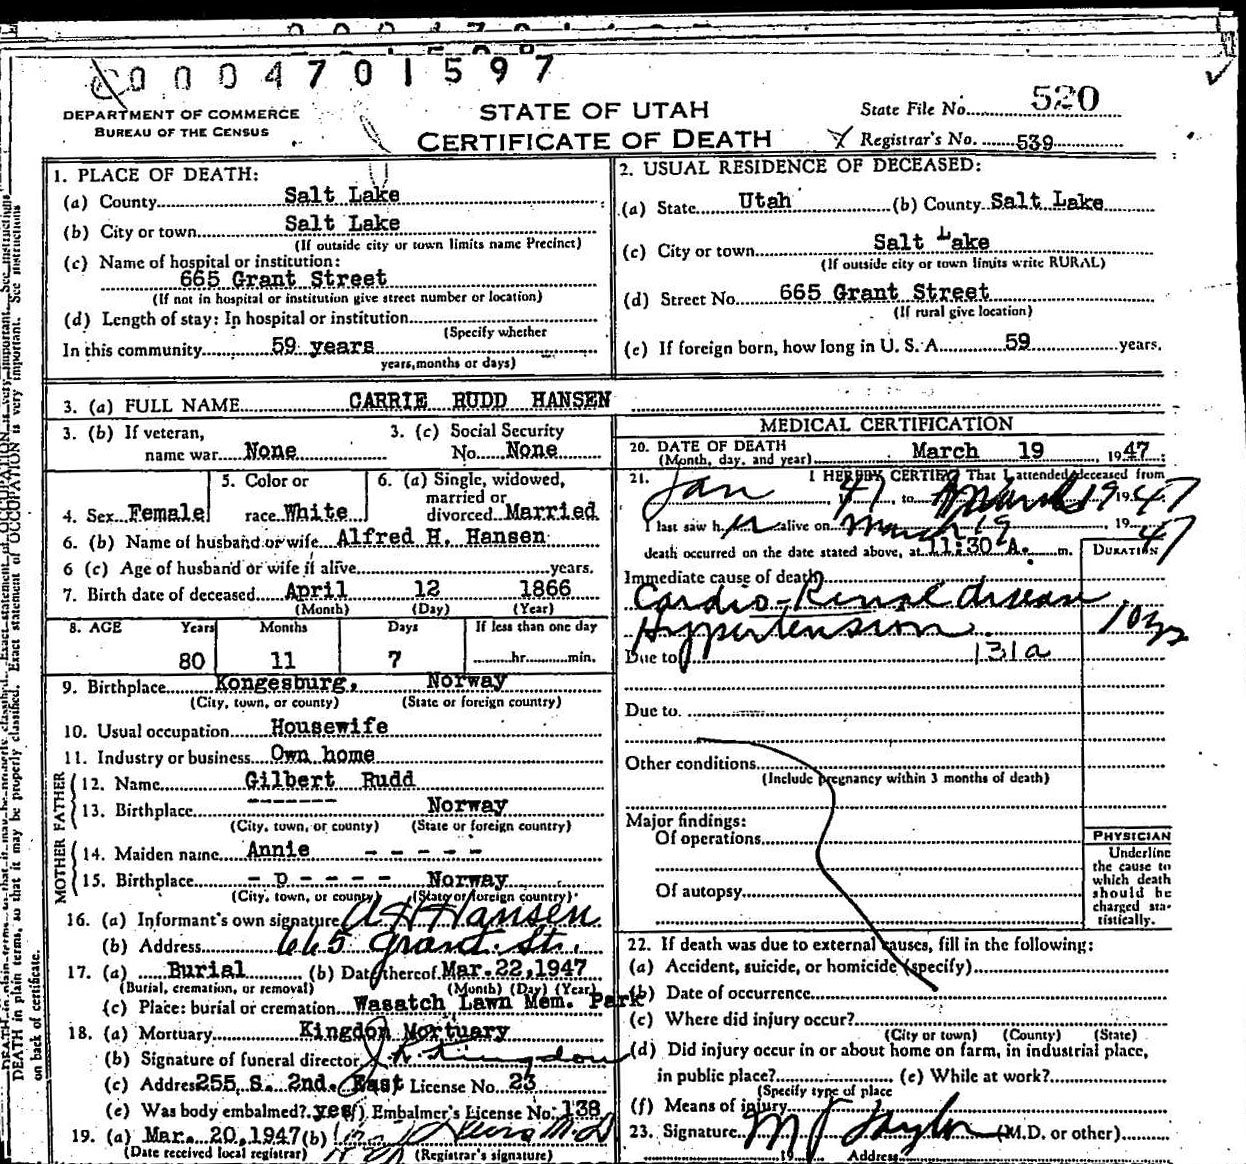 0004701597
DEPARTMENT OF COMMERCE
BUREAU OF THE CENSUS
STATE OF UTAH
CERTIFICATE OF DEATH
State File No. 520
Registrar's No. 539
1. PLACE OF DEATH:
(a) County Salt Lake
(b) City or town Salt Lake
(If outside city or town limits name Precinct)
(c) Name of hospital or institution:
665 Grant Street
(If not in hospital or institution give street number or location)
(d) Length of stay: In hospital or institution
(Specify whether
In this community 59 years
years, months or days)
2. USUAL RESIDENCE OF DECEASED:
(a) State Utah (b) County Salt Lake
(c) City or town Salt Lake
(If outside city or town limits write RURAL)
(d) Street No. 665 Grant Street
(If rural give location)
(e) If foreign born, how long in U. S. A. 59 years.
3. (a) FULL NAME CARRIE RUDD HANSEN
3. (b) If veteran,
name war None
3. (c) Social Security
No. None
4. Sex Female
5. Color or
race White
6. (a) Single, widowed,
married or
divorced Married
6. (b) Name of husband or wife Alfred H. Hansen
6 (c) Age of husband or wife if alive years.
7. Birth date of deceased April 12 1866
(Month) (Day) (Year)
8. AGE Years Months Days If less than one day
80 11 7 hr. min.
9. Birthplace Kongesburg, Norway
(City, town, or county) (State or foreign country)
10. Usual occupation Housewife
11. Industry or business Own home
FATHER
12. Name Gilbert Rudd
13. Birthplace ------- Norway
(City, town, or county) (State or foreign country)
MOTHER
14. Maiden name Annie - - - - -
15. Birthplace - - - - - Norway
(City, town, or county) (State or foreign country)
16. (a) Informant's own signature A H Hansen
(b) Address 665 Grant St.
17. (a) Burial (b) Date thereof Mar. 22, 1947
(Burial, cremation, or removal) (Month) (Day) (Year)
(c) Place: burial or cremation Wasatch Lawn Mem. Park
18. (a) Mortuary Kingdon Mortuary
(b) Signature of funeral director Kingdon
(c) Address 255 S. 2nd. East License No. 23
(e) Was body embalmed? yes (f) Embalmer's License No. 138
19. (a) Mar. 20, 1947 (b)
(Date received local registrar) (Registrar's signature)
MEDICAL CERTIFICATION
20. DATE OF DEATH March 19 1947
(Month, day, and year)
21. I HEREBY CERTIFY That I attended deceased from
Jan 47, to March 19 1947
I last saw her alive on March 19, 1947
death occurred on the date stated above, at 11:30 A. m.
DURATION
Immediate cause of death
Cardio-Renal disease
Hypertension 10 yrs
Due to 131a
Due to
Other conditions
(Include pregnancy within 3 months of death)
Major findings:
Of operations
Of autopsy
PHYSICIAN
Underline
the cause to
which death
should be
charged sta-
tistically.
22. If death was due to external causes, fill in the following:
(a) Accident, suicide, or homicide (specify)
(b) Date of occurrence
(c) Where did injury occur?
(City or town) (County) (State)
(d) Did injury occur in or about home on farm, in industrial place,
in public place? (e) While at work?
(Specify type of place
(f) Means of injury
23. Signature M J Taylor (M.D. or other)
19 Address
DEATH in plain terms, so that it may be properly classified. Exact statement of OCCUPATION is very important. See instructions
on back of certificate.